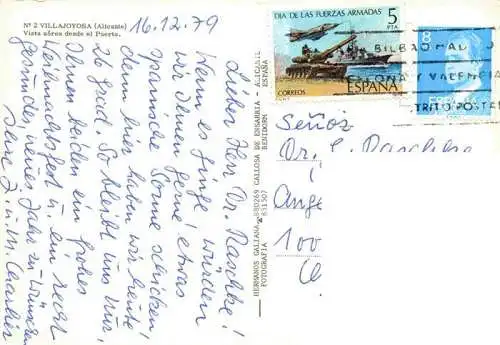 Nº 2 VILLAJOYOSA (Alicante)
Vista aérea desde el Puerto.
16.12.79
Lieber Herr Dr. Raschke!
Wenn es ginge, würden
wir Ihnen gerne etwas
spanische Sonne schicken,
denn hier haben wir heute
26 grad. So bleibt uns nur,
Ihnen beiden ein frohes
Weihnachtsfest u. ein recht
gesundes neues Jahr zu wünschen
Ihre
HERMANOS GALIANA
FOTOGRAFIA
880269 GALLOSA DE ENSARRIA
851507 BENIDORM
ALICANTE
ESPAÑA
DIA DE LAS FUERZAS ARMADAS
5
PTA
CORREOS
ESPAÑA
8
BILBAO
VALENCIA
TRITO POSTAL
Señor
Dr.
100